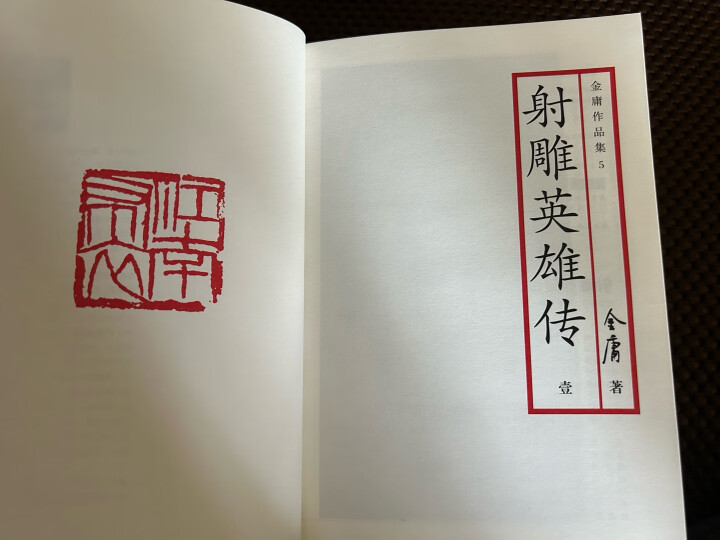 江南
布衣
金庸作品集5
射雕英雄传 壹
金庸 著